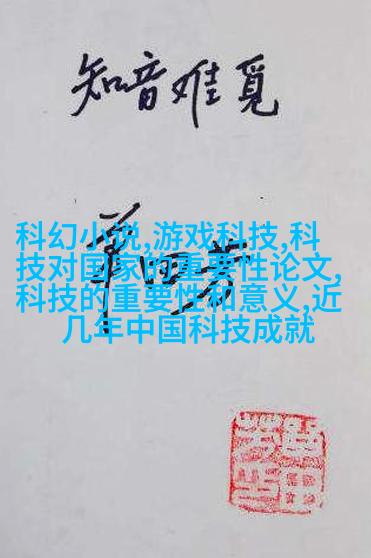 知音难觅
单田芳
科幻小说,游戏科技,科
技对国家的重要性论文,
科技的重要性和意义,近
几年中国科技成就